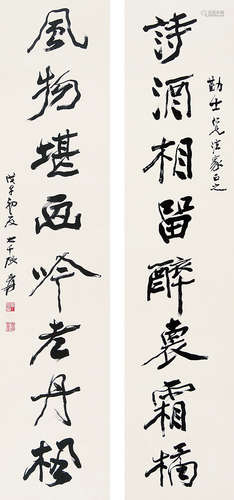 勤士兄法家正之
詩酒相留醉裏霜橘
風物堪画吟老丹楓
戊子初夏 大千張爰